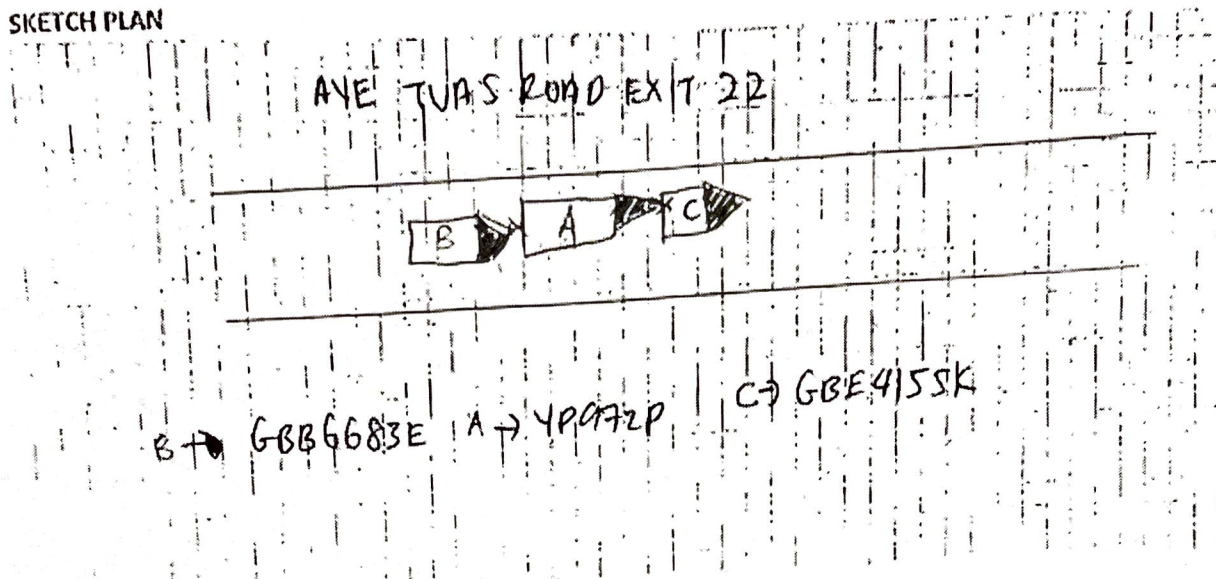 SKETCH PLAN
AYE TUAS ROAD EXIT 22
B A C
B → GBB6683E A → YP972P C → GBE4155K